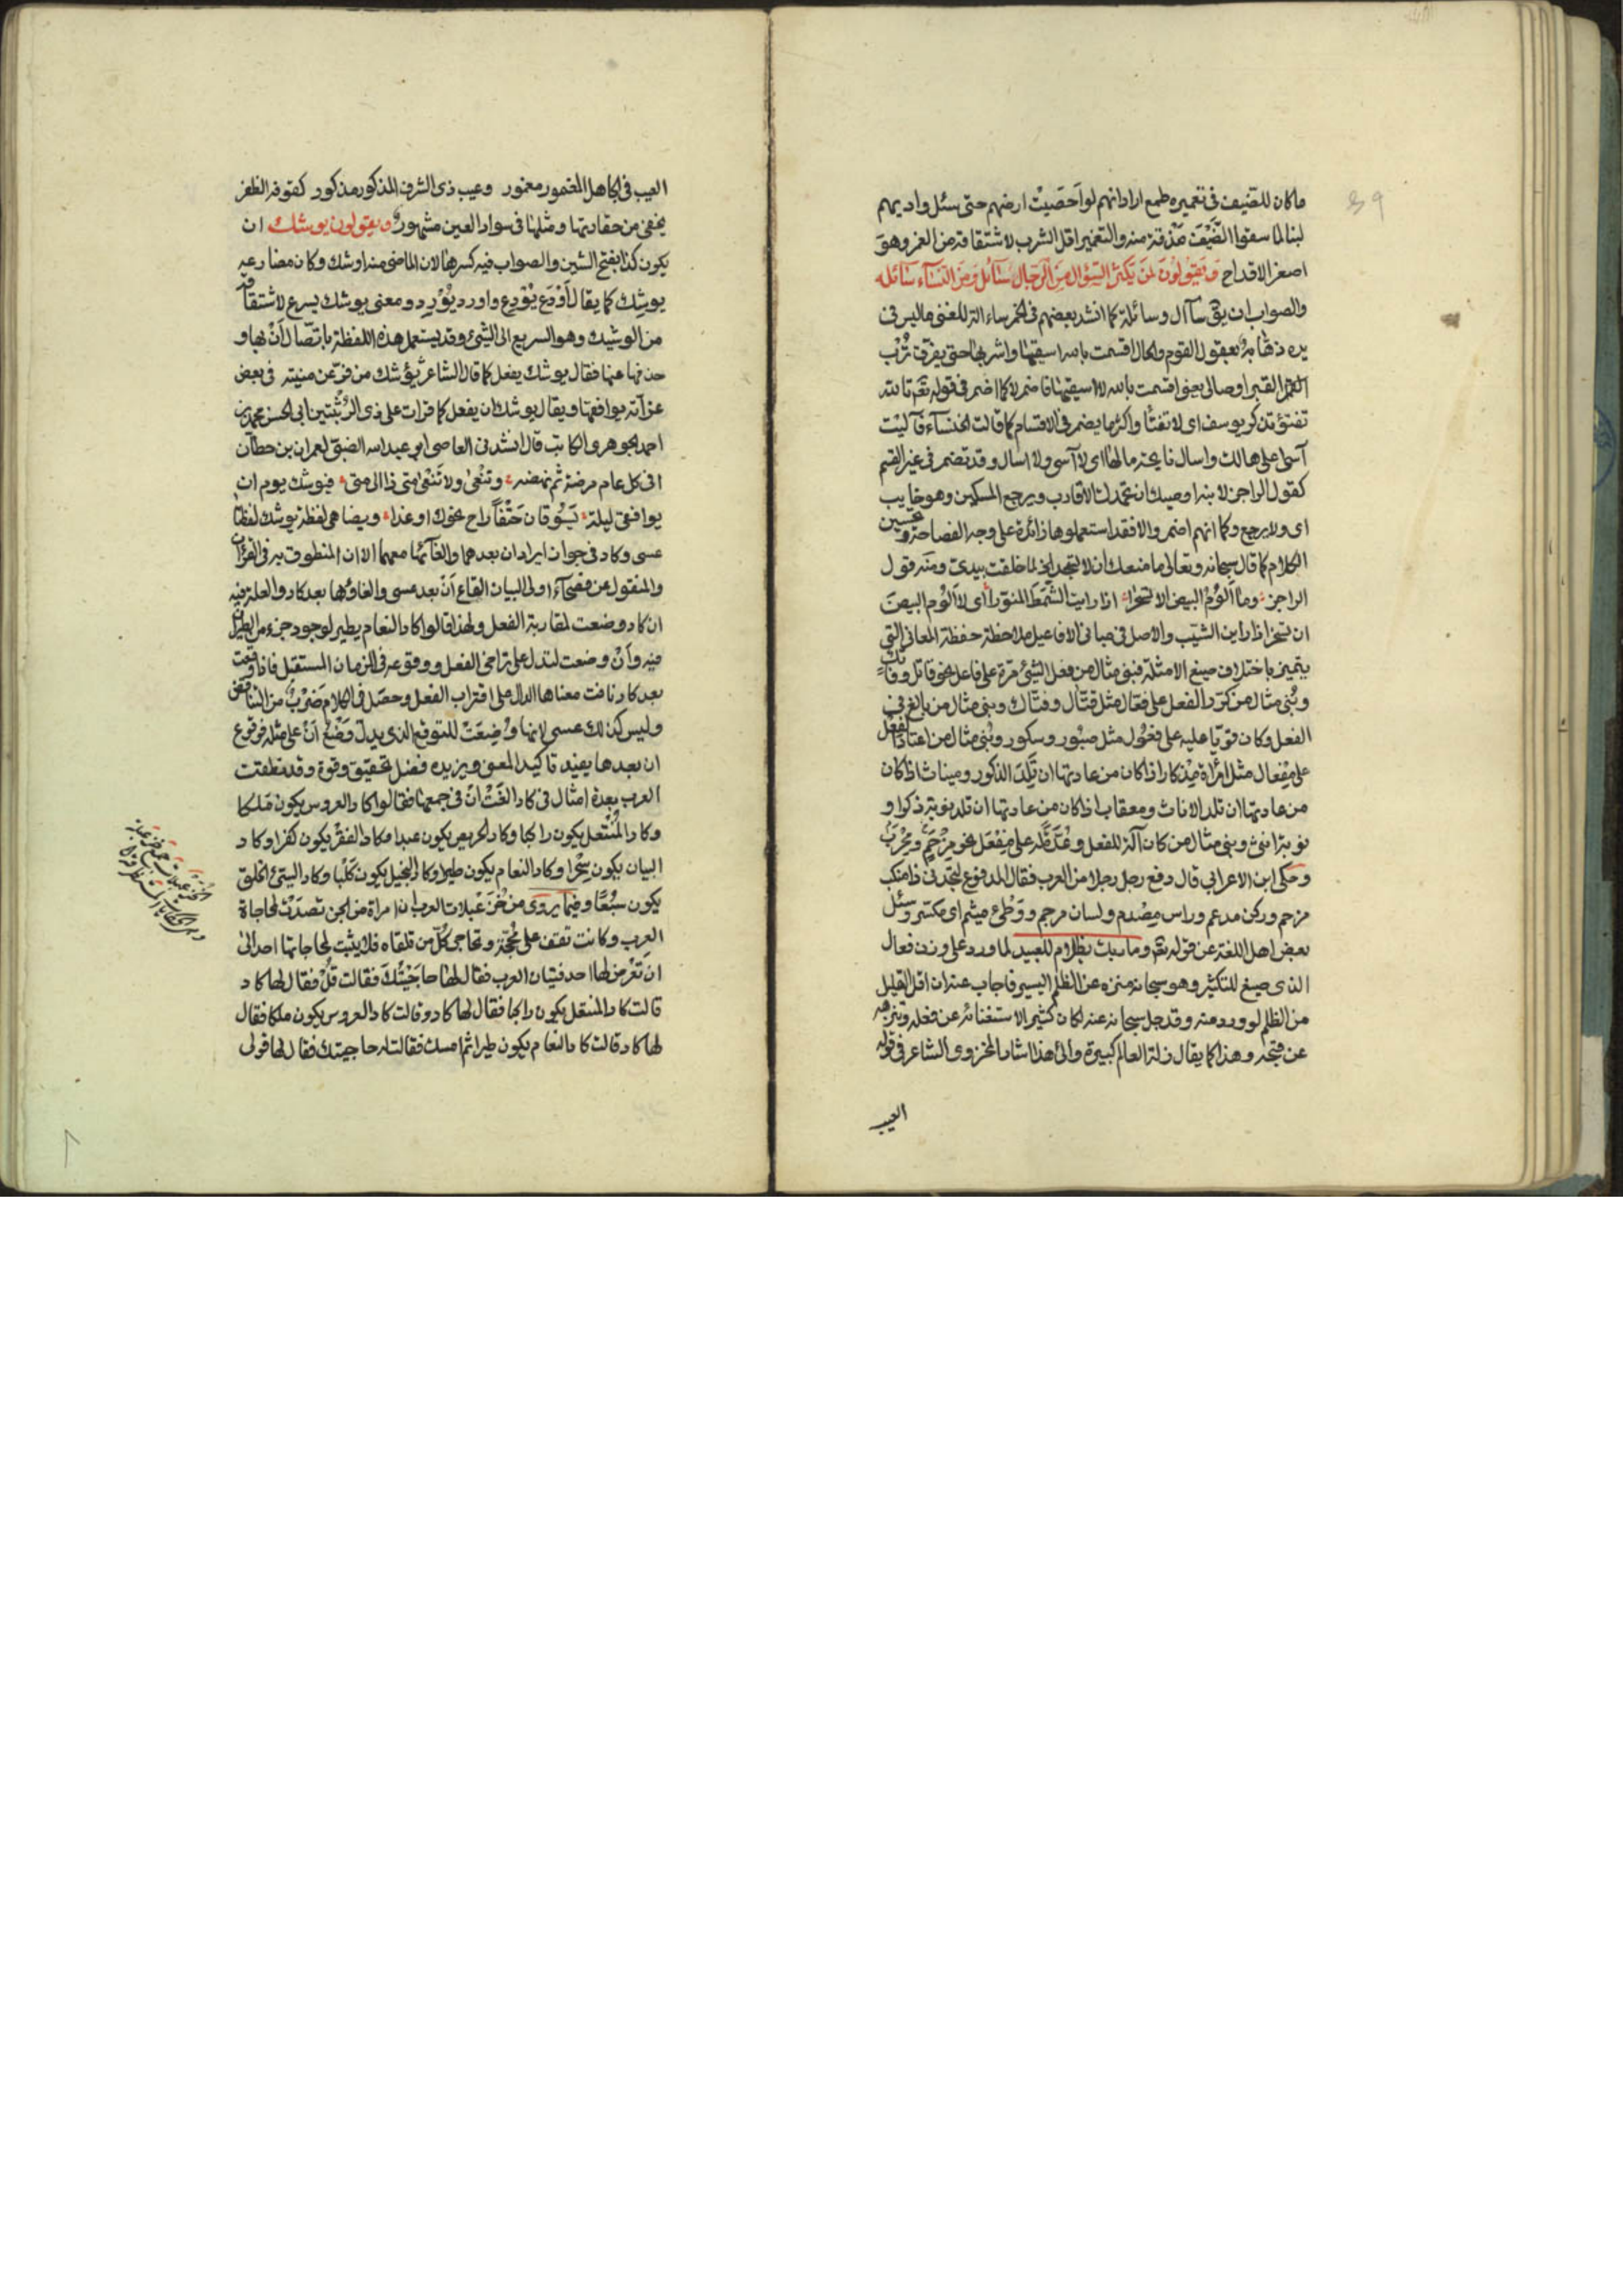 ماكان للضيف فى تغميره طمع اراد انهم لو اخصبت ارضهم حتى سئل واديهم
لبنا لما سقوا الضيف مذقة منه والتغمير اقل الشرب لاشتقاقه من الغمر وهو
اصغر الاقداح ويقولون لمن يكثر السؤال من الرجال سائل ومن النساء سائله
والصواب ان يق سآال وسائلة كما انشد بعضهم فى الخمر ساءالة للفتى ماليس فى
يده ذهابة بعقول القوم والمال اقسمت بالله اسقيها واشربها حتى يفرق ترب
القبر اوصالى يعنى اقسمت بالله لا اسقيها فاضمر لا كما اضمر فى قوله تعم تالله
تفتؤ تذكر يوسف اى لا تفتأ واكثر ما يضمر فى الاقسام كما قالت الخنساء فآليت
آسى على هالك واسال نايحة مالها اى لا آسى ولا اسال وقد تضمر فى غير القسم
كقول الراجز لابنه اوصيك ان تحمدك الاقارب ويرجع المسكين وهو خايب
اى ولا يرجع وكما انهم اضمروا لا فقد استعملوها زائدة على وجه الفصاحة وتحسين
الكلام كما قال سبحانه وتعالى ما منعك ان لا تسجد لما خلقت بيدى ومنه قول
الراجز وما الوم البيض الا تسخرا اذا رايت الشمط المنورا اى لا الوم البيض
ان تسخر اذا راين الشيب والاصل فى مبانى الافاعيل ملاحظة حفظة المعانى التى
يتميز باختلاف صيغ الامثلة فبنى مثال من فعل الشئ مرة على فاعل نحو قاتل وفاتك
وبنى مثال من كرر الفعل على فعال مثل قتال وفتاك وبنى مثال من بالغ فى
الفعل وكان قويا عليه على فعول مثل صبور وسكور وبنى مثال من اعتاد الفعل
على مفعال مثل امرأة مذكار اذا كان من عادتها ان تلد الذكور وميناث اذا كان
من عادتها ان تلد الاناث ومعقاب اذا كان من عادتها ان تلد نوبة ذكرا و
نوبة انثى وبنى مثال من كان آلة للفعل وعدة له على مفعل نحو مزحم ومحرب
وحكى ابن الاعرابى قال دفع رجل رجلا من العرب فقال المدفوع لتجدنى ذا منكب
مزحم وركن مدعم وراس مصدم ولسان مرجم ووطئ ميثم اى مكسر وسئل
بعض اهل اللغة عن قوله تعم وما ربك بظلام للعبيد لما ورد على وزن فعال
الذى صيغ للتكثير وهو سبحانه منزه عن الظلم اليسير فاجاب عنه ان اقل القليل
من الظلم لو ورد منه وقد جل سبحانه عنه لكان كثيرا لاستغنائه عن فعله وتنزهه
عن قبحه وهذا كما يقال زلة العالم كبيرة والى هذا اشار المخزومى الشاعر فى قوله
العيب
العيب فى الجاهل المغمور مغمور وعيب ذى الشرف المذكور مذكور كفوفة الظفر
يخفى من حقارتها ومثلها فى سواد العين مشهور ويقولون يوشك ان
يكون كذا بفتح الشين والصواب فيه كسرها لان الماضى منه اوشك وكان مضارعه
يوشك كما يقال أودع يودع واورد يورد ومعنى يوشك يسرع لاشتقاقه
من الوشيك وهو السريع الى الشئ وقد يستعمل هذه اللفظة باتصال أن بها و
حذفها عنها فقال يوشك يفعل كما قال الشاعر يوشك من فر من منيته فى بعض
غراته يوافقها ويقال يوشك ان يفعل كما قرات على ذى الرتبتين ابى الحسن محمد بن
احمد الجوهرى الكاتب قال انشدنى القاضى ابو عبد الله الضبى لعمران بن حطان
افى كل عام مرضة ثم نهضه وتنعى ولا تنعى متى ذا الى متى فيوشك يوم ان
يوافق ليلة يسوقان حتفا راح نحوك او غدا ويضاهى لفظة يوشك لفظتا
عسى وكاد فى جواز ايراد ان بعدهما والغائها معهما الا ان المنطوق به فى القرآن
والمنقول عن فصحاء اولى البيان ايقاع أن بعد عسى والغاؤها بعد كاد والعلة فيه
ان كاد وضعت لمقاربة الفعل ولهذا قالوا كاد النعام يطير لوجود جزء من الطيران
فيه وأن وضعت لتدل على تراخى الفعل ووقوعه فى الزمان المستقبل فاذا وقعت
بعد كاد نافت معناها الدال على اقتراب الفعل وحصل فى الكلام ضرب من التناقض
وليس كذلك عسى لانها وضعت للتوقع الذى يدل وضع أن على مثله فوقوع
ان بعدها يفيد تاكيد المعنى ويزيده فضل تحقيق وقوة وقد نطقت
العرب بعدة امثال فى كاد الغت ان فى جميعها فقالوا كاد العروس يكون ملكا
وكاد المنتعل يكون راكبا وكاد الحريص يكون عبدا وكاد الفقر يكون كفرا وكاد
البيان يكون سحرا وكاد النعام يكون طيرا وكاد البخيل يكون كلبا وكاد السيئ الخلق
يكون سبعا وفيما يروى من خزعبلات العرب ان امراة من الجن تصدت لمحاجاة
العرب وكانت تقف على محجة وتحاجى كل من تلقاه فلا يثبت لمحاجاتها احد الى
ان تعرض لها احد فتيان العرب فقال لها حاجيتك فقالت قل فقال لها كاد
قالت كاد المنتعل يكون راكبا فقال لها كاد وقالت كاد العروس يكون ملكا فقال
لها كاد قالت كاد النعام يكون طيرا ثم امسك فقالت له حاجيتك فقال لها قولى